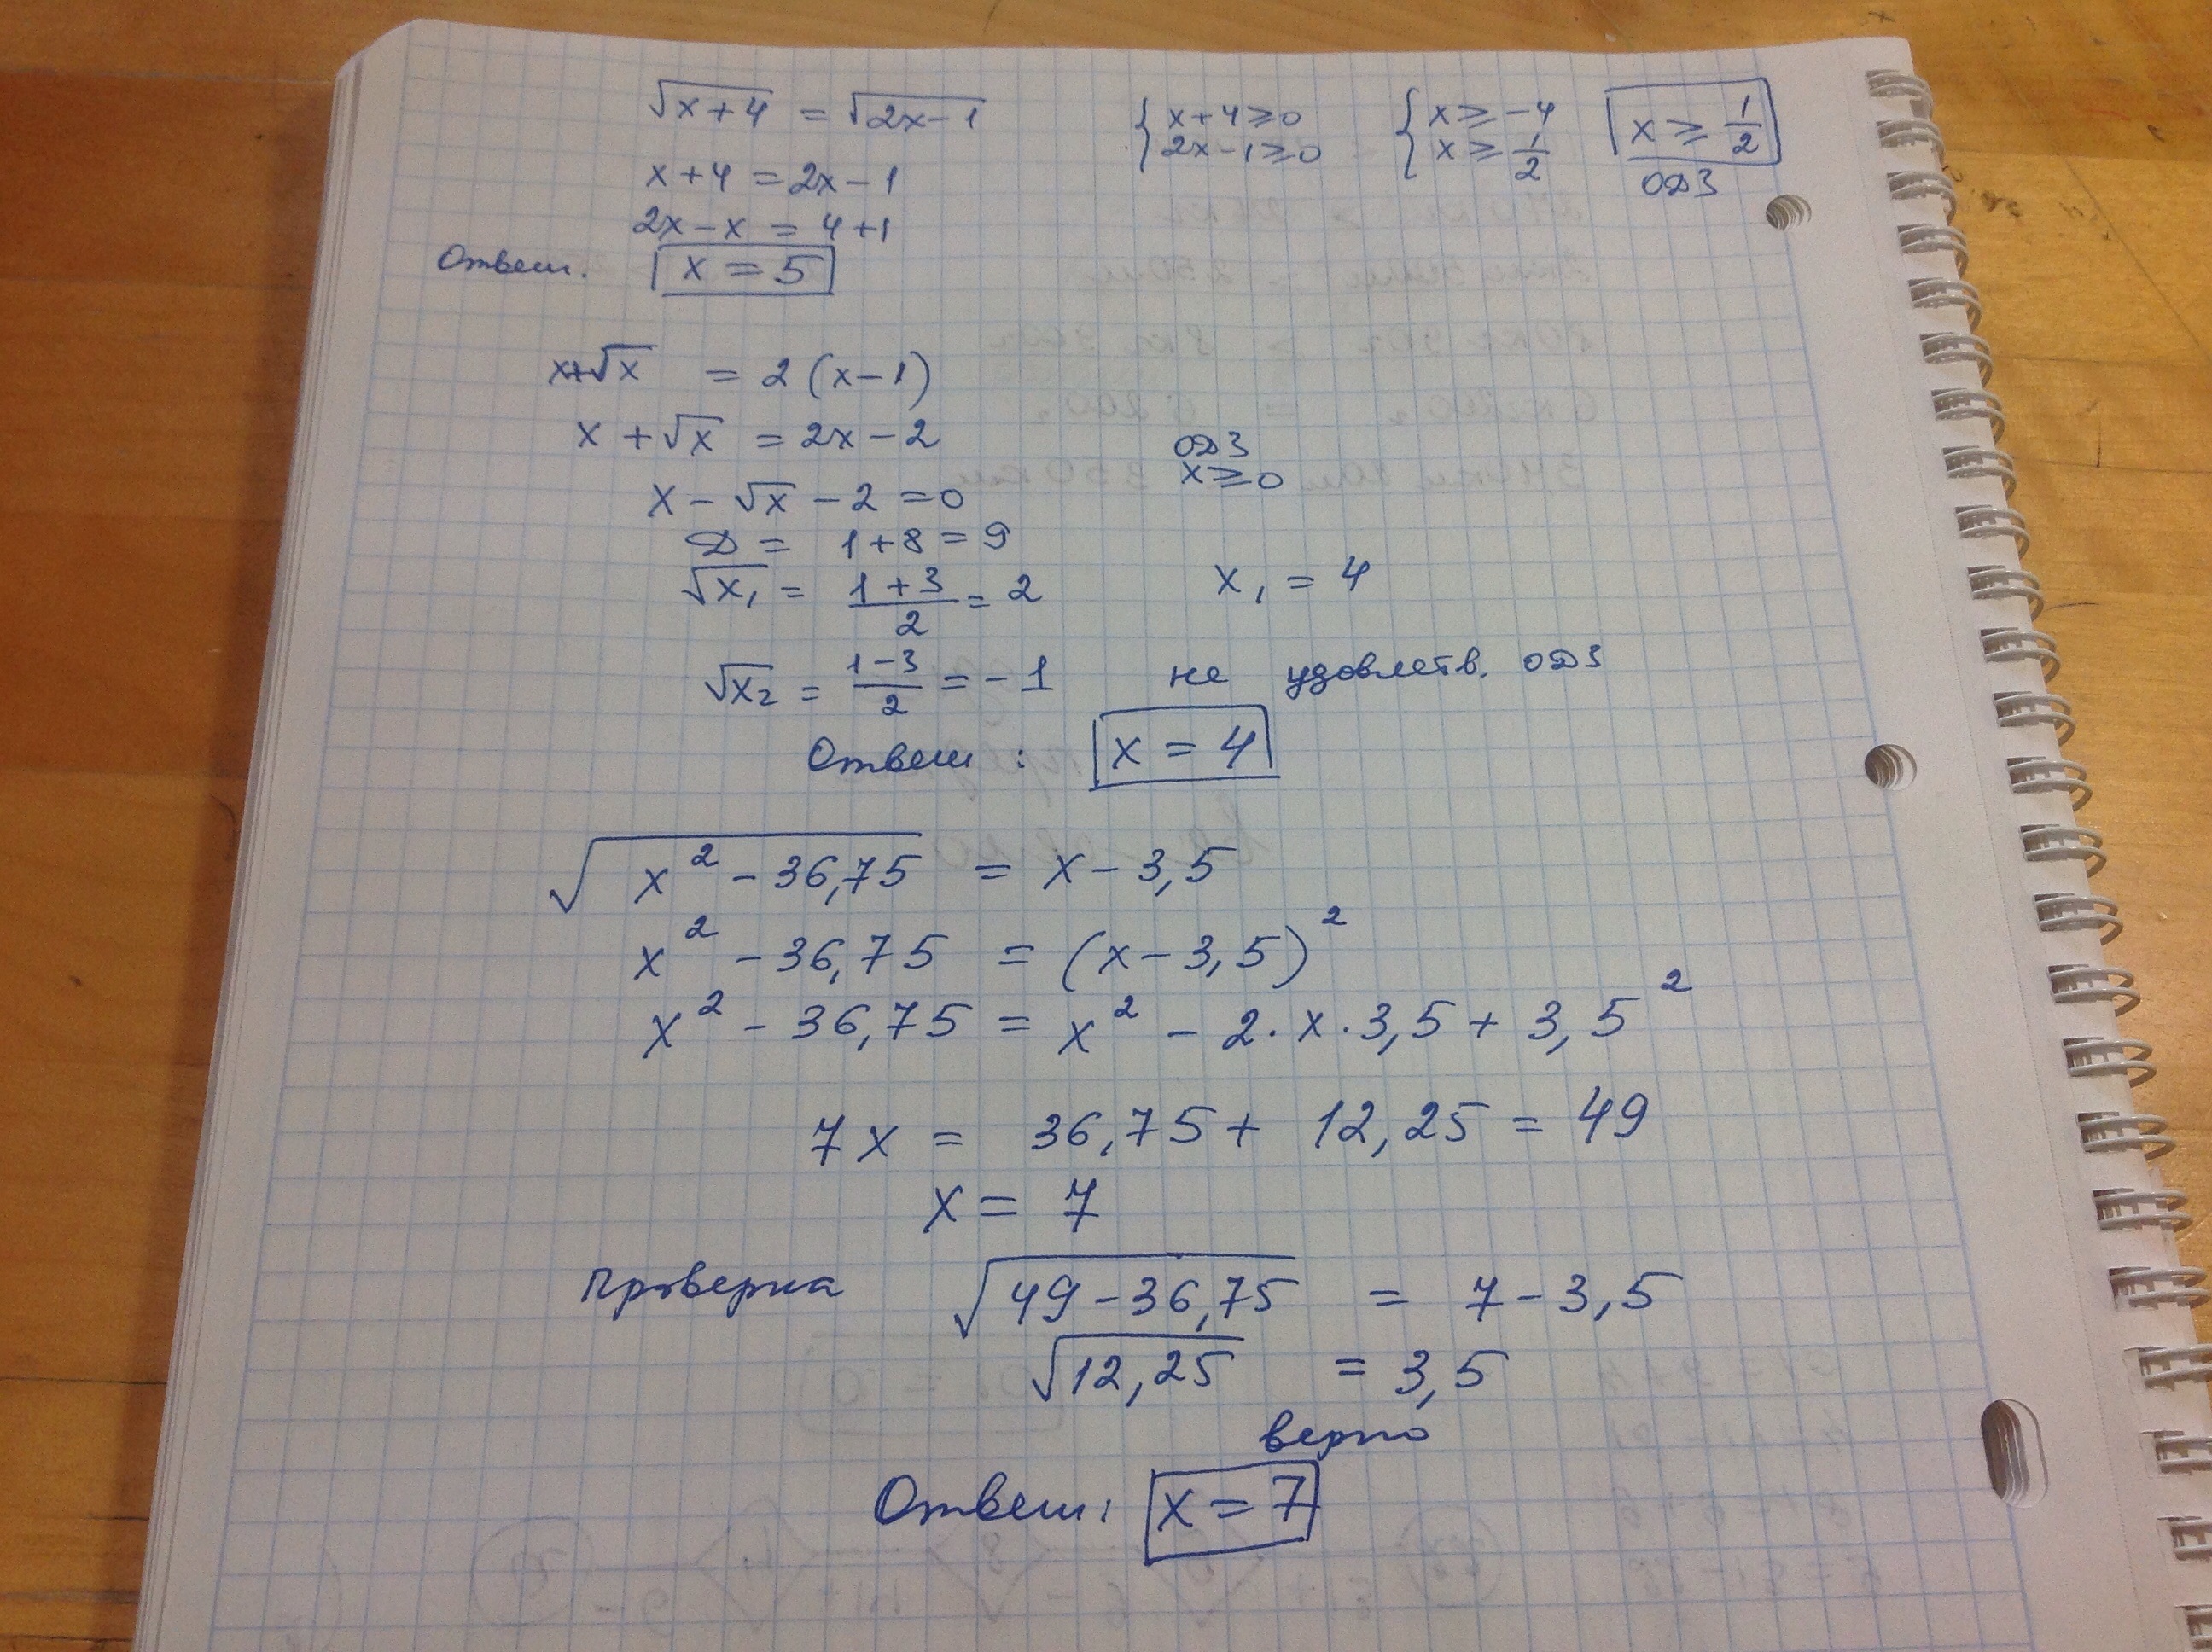 √x+4 = √2x-1   { x+4≥0   { x≥-4   x≥1/2
2x-1≥0   x≥1/2   ОДЗ
x+4 = 2x-1
2x-x = 4+1
Ответ. x = 5
x+√x = 2(x-1)
x+√x = 2x-2   ОДЗ
x-√x-2=0   x≥0
Д = 1+8=9
√x₁ = (1+3)/2 = 2   x₁ = 4
√x₂ = (1-3)/2 = -1   не удовлетв. ОДЗ
Ответ: x = 4
√x²-36,75 = x-3,5
x²-36,75 = (x-3,5)²
x²-36,75 = x²-2·x·3,5+3,5²
7x = 36,75+12,25 = 49
x = 7
Проверка √49-36,75 = 7-3,5
√12,25 = 3,5
верно
Ответ: x = 7